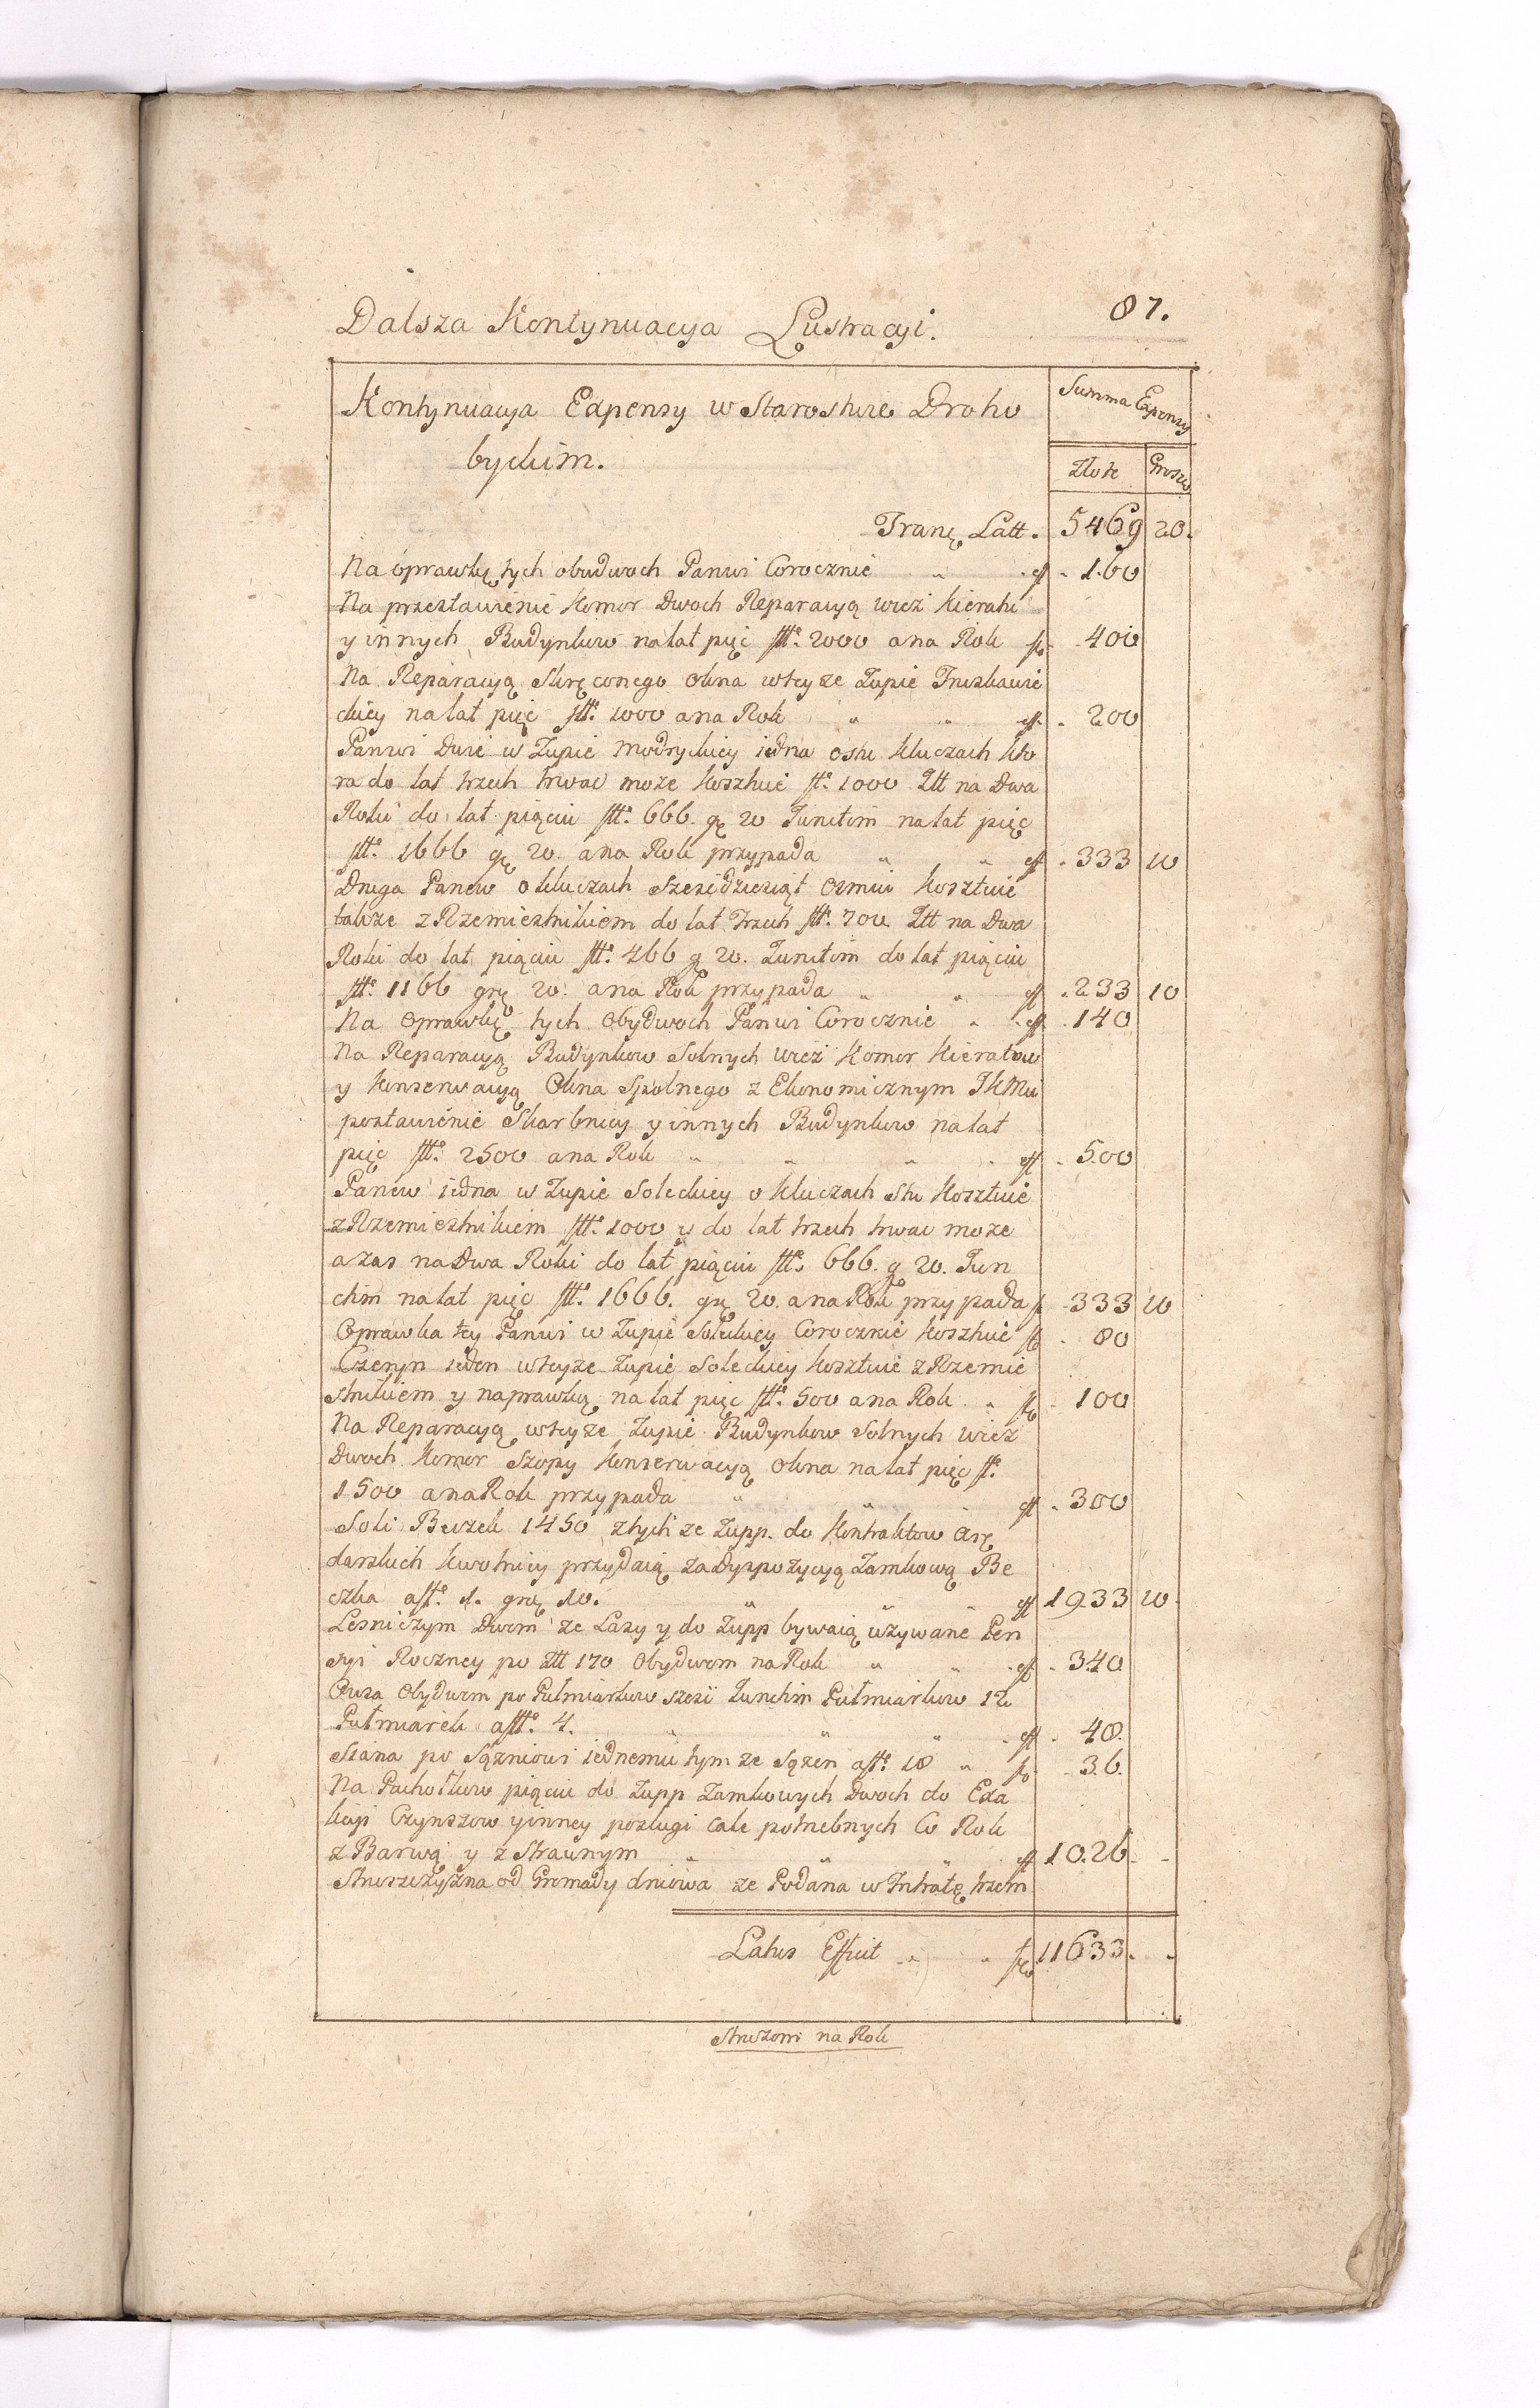 87.
Dalsza Kontynuacya Lustracyi.
Kontynuacya Expensy w Starostwie Droho
byckim.
Summa Expensy
Złote Grosze
Tranẽ Latt. 5469 20.
Na oprawkę tych obudwoch Panwi Corocznie " eff - 160
Na przestawienie Komor Dwoch Reparacyą wież Kieratu
y innych Budynkow na lat pięć ffł. 2000 a na Rok fło 400
Na Reparacyą Skręconego Okna w teyże Zupie Truskawie
ckiey na lat pięć ffł. 1000 a na Rok " " eff. - 200
Panwi Dwie w Zupie Modryckiey iedna o stu kluczach kto
ra do lat trzech trwać może kosztuie fł. 1000 Itt na Dwa
Roki do lat pięciu ffł. 666. gr 20 Iunctim na lat pięć
ffł. 1666 gr 20. a na Rok przypada " " eff - 333 10
Druga Panew o kluczach sześcdziesiąt osmiu kosztuie
także z Rzemieslnikiem do lat trzech ffł. 700. Itt na Dwa
Roki do lat pięciu ffł. 466 g 20. Iunctim do lat pięciu
ffł. 1166 grę 20. a na Rok przypada " " eff - 233 10
Na Oprawkę tych Obydwoch Panwi Corocznie " eff - 140
Na Reparacyą Budynkow Solnych wież Komor Kieratow
y konserwacyą Okna Spolnego z Ekonomicznym JKMci
postawienie Skarbnicy y innych Budynkow na lat
pięć ffł. 2500 a na Rok " " " eff - 500
Panew iedna w Zupie Soleckiey o kluczach stu kosztuie
z Rzemieslnikiem ffł. 1000 y do lat trzech trwac może
a zas na Dwa Roki do lat pięciu ffł. 666. g 20. Iun
ctim na lat pięć ffł. 1666. grę 20. a na Rok przypada f - 333 10
Oprawka tey Panwi w Zupie Soleckiey Corocznie kosztuie fło - 80
Czeryn ieden w teyże Zupie Soleckiey kosztuie z Rzemie
slnikiem y naprawką na lat pięć ffł. 500 a na Rok " fło - 100
Na Reparacyą w teyże Zupie Budynkow Solnych wież
Dwoch Komor Szopy konserwacyą okna na lat pięć fł.
1500 a na Rok przypada " " eff - 300
Soli Beczek 1450 z tych ze Zupp. do Kontraktow Arę
darskich kwotnicy przydaią za Dyspozycyą Zamkową Be
czka a fł. 1. grę 10. " " eff 1933 10.
Lesniczym Dwom że Lasy y do Zupp bywaią używane Pen
syi Roczney po Złł 170 Obydwom na Rok " " eff - 340
Owsa Obydwom po Pułmiarkow sześć Iunctim Pułmiarkow 12
Pułmiarek a ffł. 4. " " " eff - 48.
Siana po Sążniowi iednemu tym że Sążen a fł. 18 " fło - 36.
Na Pachołkow pięciu do Zupp Zamkowych Dwoch do Exa
kcyi Czynszow y inney posługi cale potrzebnych Co Rok
z Barwą y z Strawnym " " " eff 1026 - -
Stroszczyzna od Gromady dniowa ze Podana w Intratę trzem
Latus Efficit " " fło 11633. -
Strożom na Rok